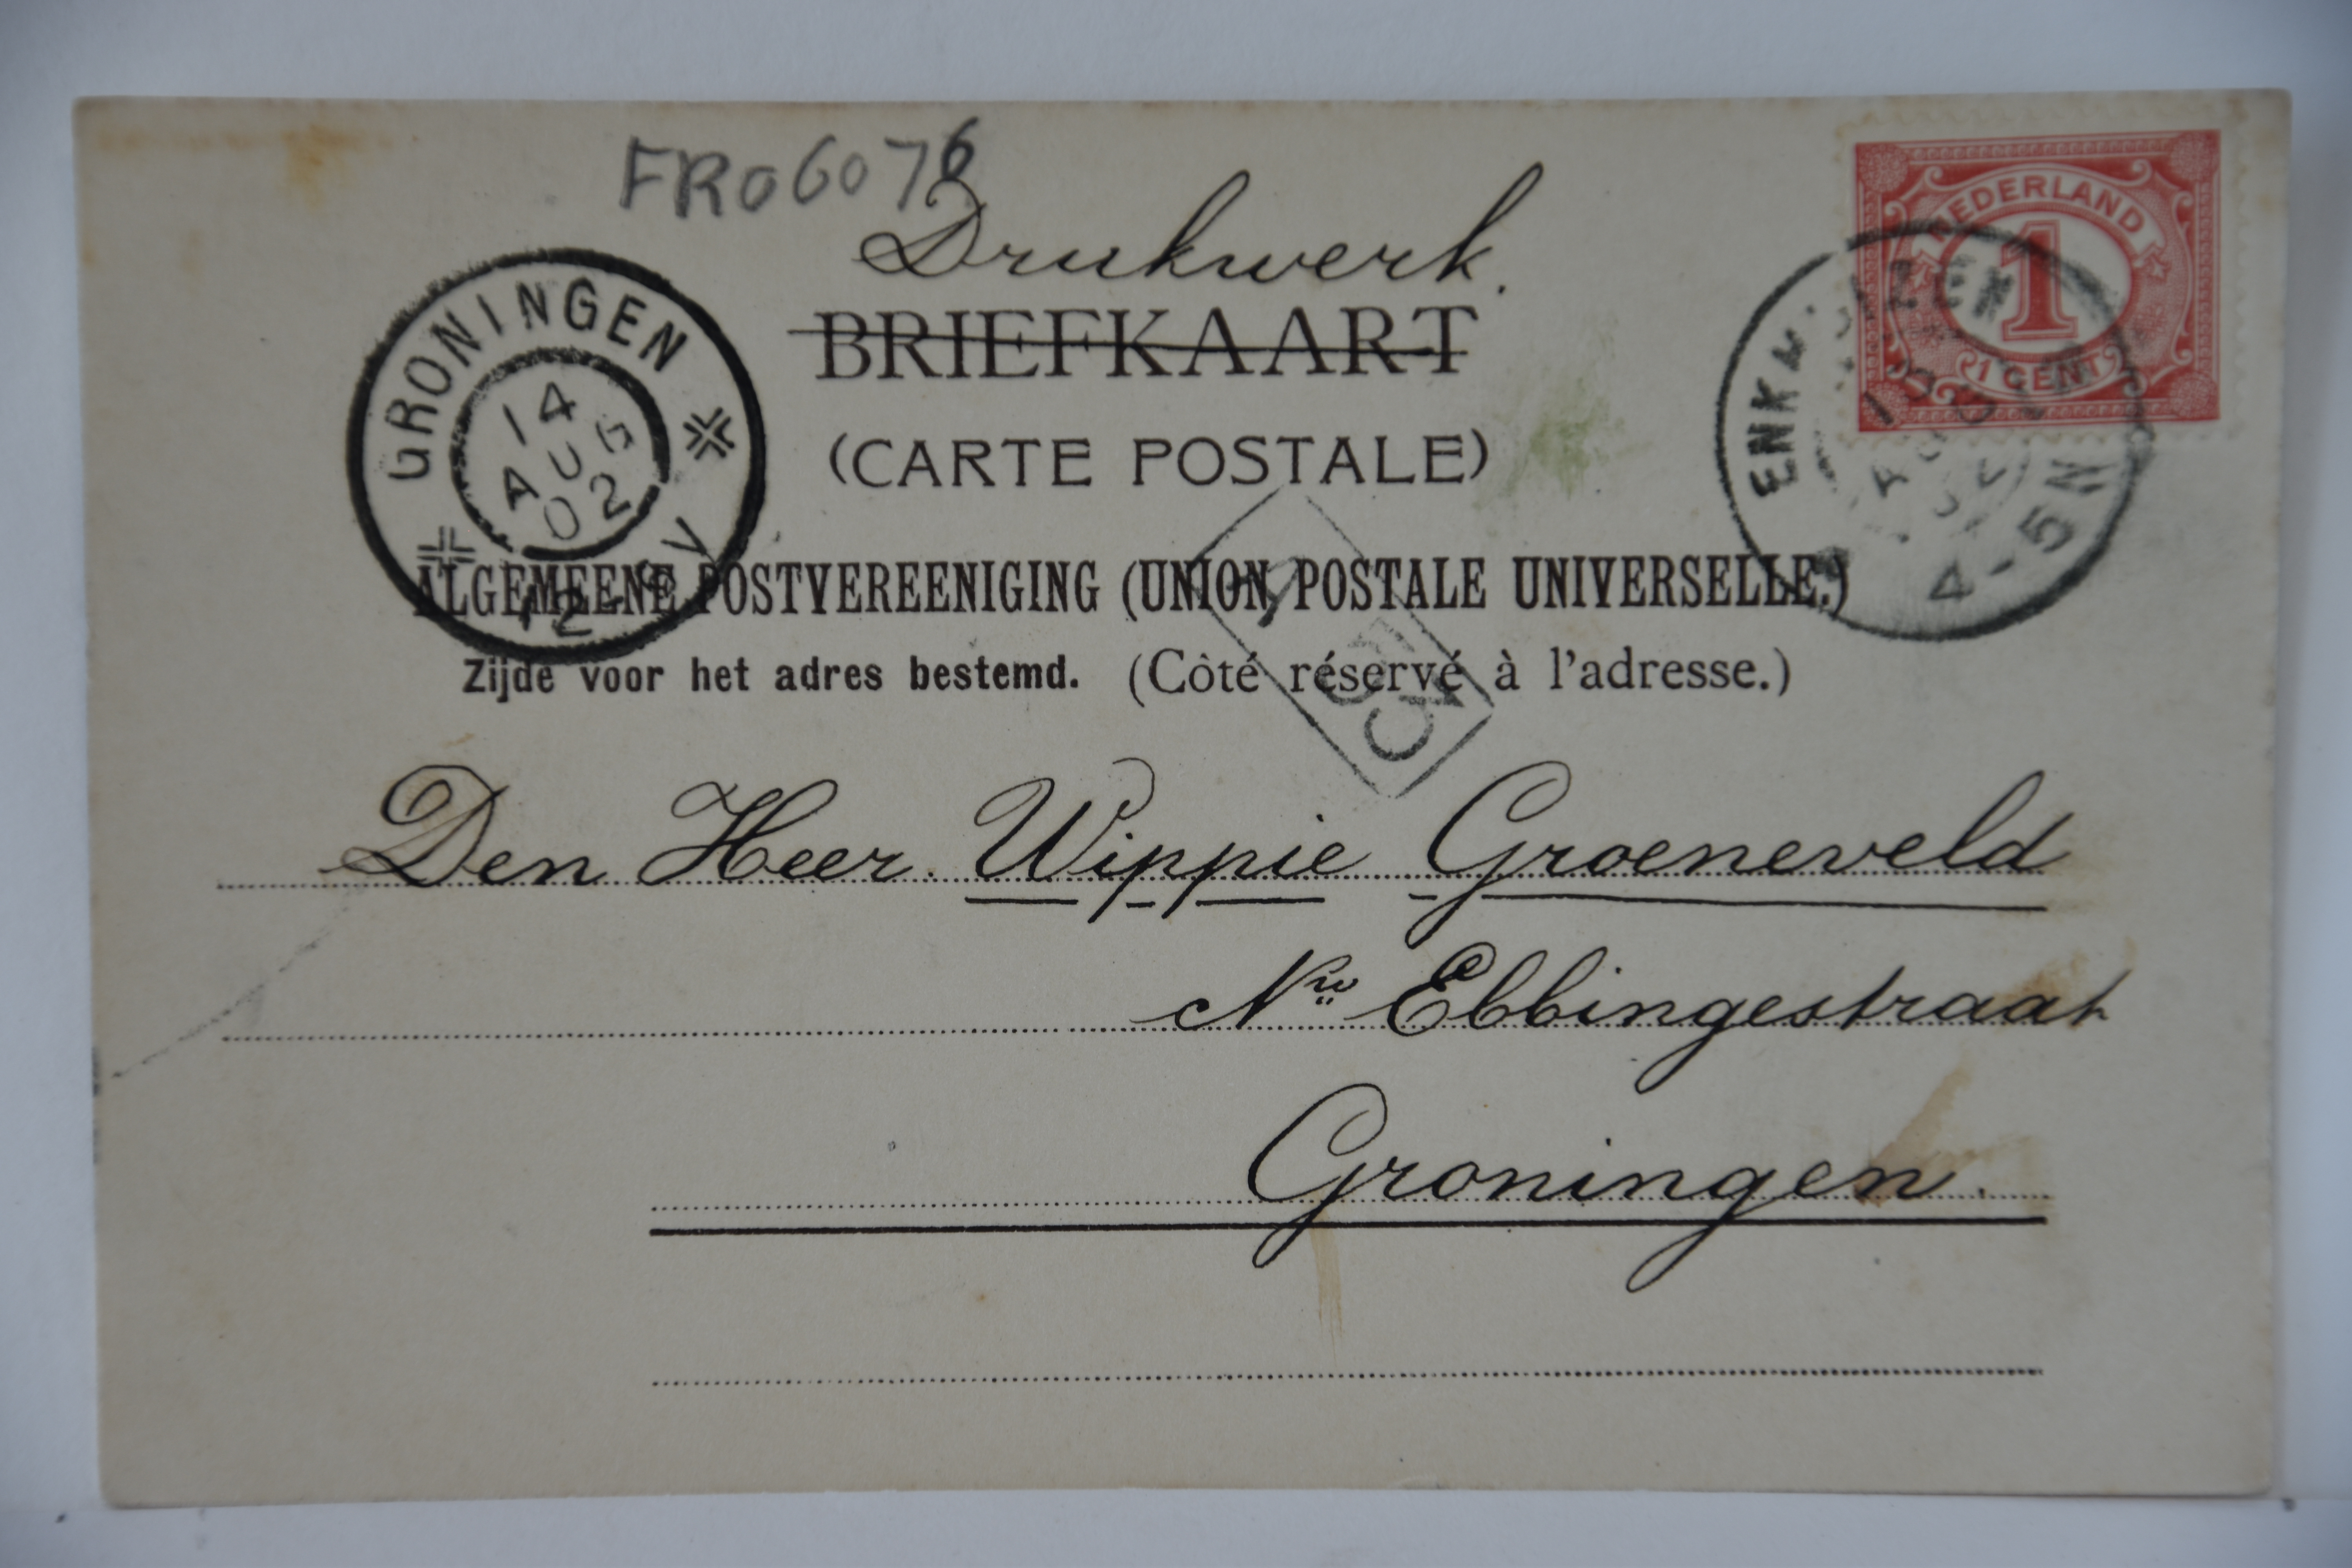 FR06076
Drukwerk.
BRIEFKAART
(CARTE POSTALE)
ALGEMEENE POSTVEREENIGING (UNION POSTALE UNIVERSELLE.)
Zijde voor het adres bestemd. (Côté réservé à l'adresse.)
GRONINGEN
14
AUG
02
NEDERLAND
1
1 CENT
4-5N
Den Heer. Wippie Groeneveld
Nwe Ebbingestraat
Groningen.